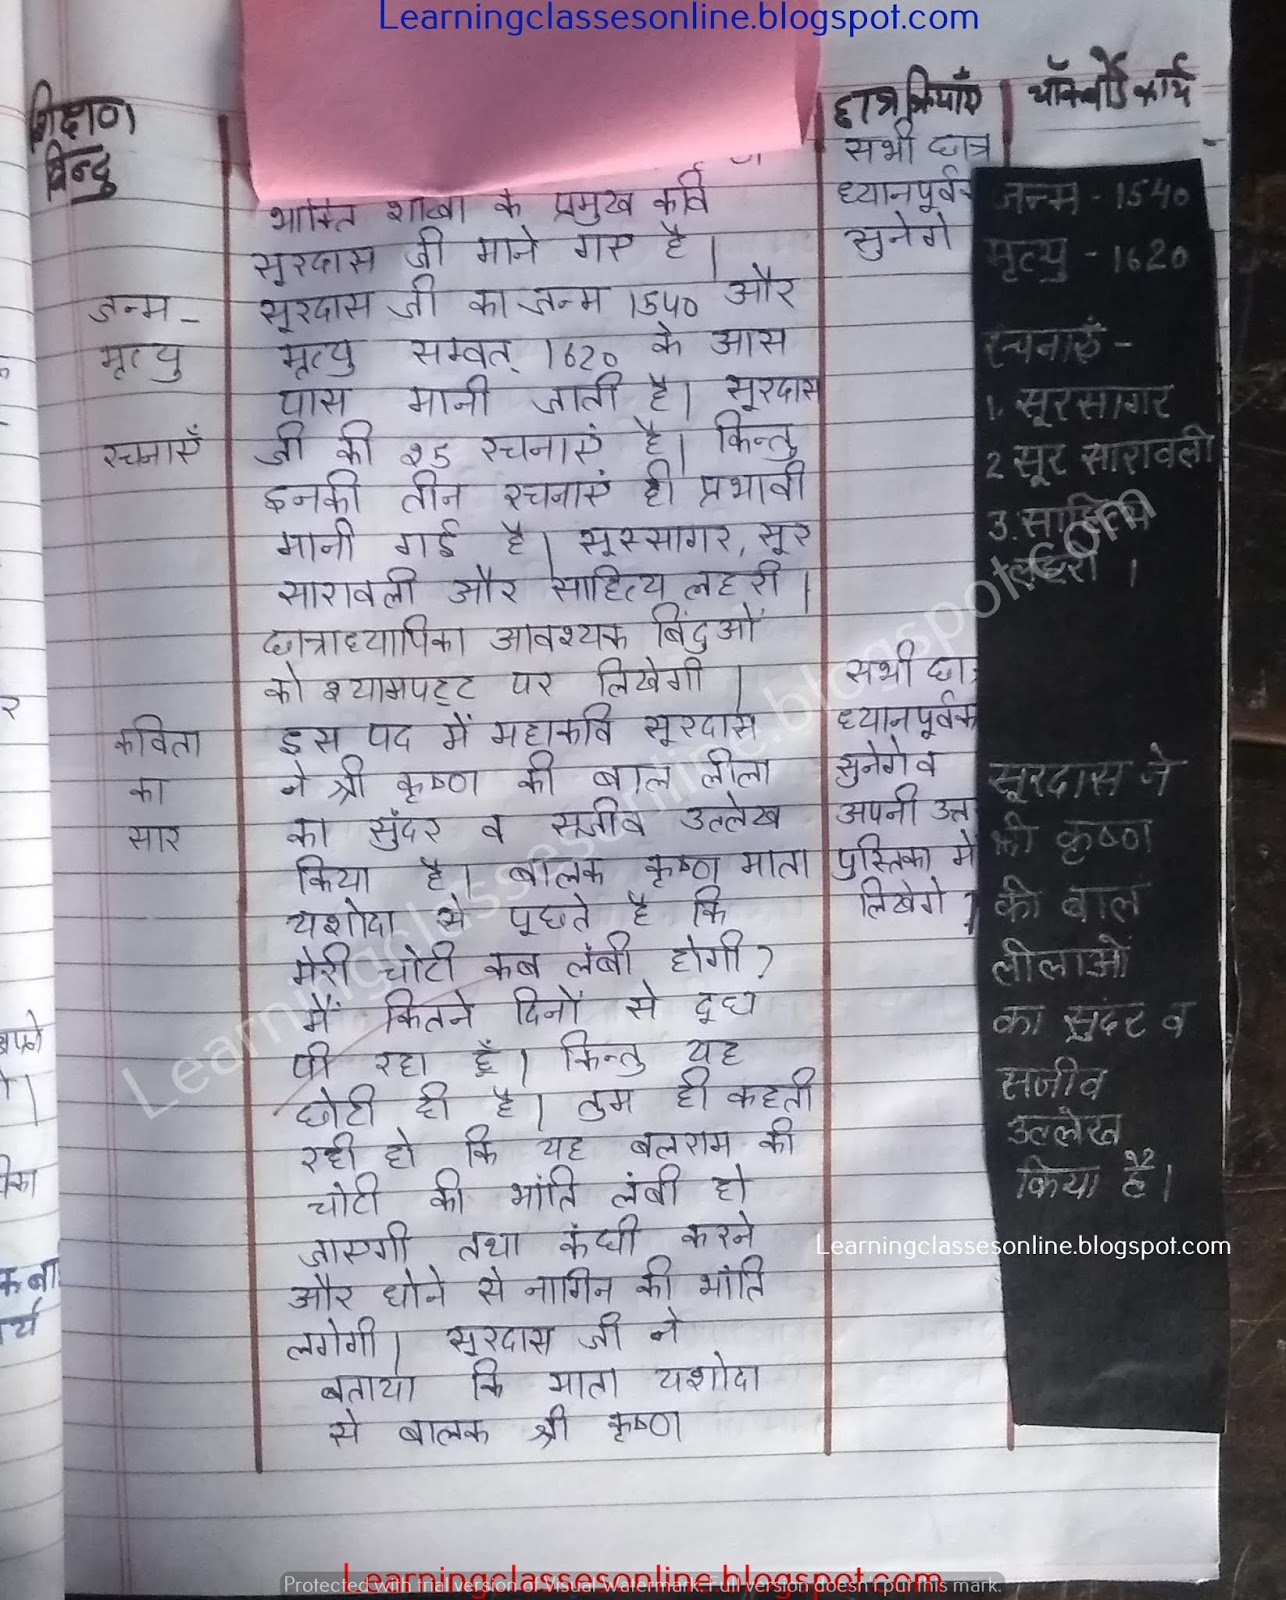 Learningclassesonline.blogspot.com
शिक्षण
बिन्दु
छात्र क्रियाएँ
चॉकबोर्ड कार्य
भक्ति शाखा के प्रमुख कवि
सूरदास जी माने गए है।
जन्म -
मृत्यु
सूरदास जी का जन्म 1540 और
मृत्यु सम्वत् 1620 के आस
पास मानी जाती है। सूरदास
रचनाएँ
जी की 25 रचनाएं है। किन्तु
इनकी तीन रचनाएं ही प्रभावी
मानी गई है। सूरसागर, सूर
सारावली और साहित्य लहरी।
छात्राध्यापिका आवश्यक बिंदुओं
को श्यामपट्ट पर लिखेगी।
कविता
का
सार
इस पद में महाकवि सूरदास
ने श्री कृष्ण की बाल लीला
का सुंदर व सजीव उल्लेख
किया है। बालक कृष्ण माता
यशोदा से पूछते है कि
मेरी चोटी कब लंबी होगी?
मैं कितने दिनों से दूध
पी रहा हूँ। किन्तु यह
छोटी ही है। तुम ही कहती
रही हो कि यह बलराम की
चोटी की भांति लंबी हो
जाएगी तथा कंघी करने
और धोने से नागिन की भांति
लगेगी। सूरदास जी ने
बताया कि माता यशोदा
से बालक श्री कृष्ण
सभी छात्र
ध्यानपूर्वक
सुनेगे
सभी छात्र
ध्यानपूर्वक
सुनेगे व
अपनी उत्त
पुस्तिका में
लिखेगे।
जन्म - 1540
मृत्यु - 1620
रचनाएं -
1. सूरसागर
2 सूर सारावली
3. साहित्य
लहरी।
सूरदास ने
श्री कृष्ण
की बाल
लीलाओं
का सुंदर व
सजीव
उल्लेख
किया है।
Learningclassesonline.blogspot.com
Learningclassesonline.blogspot.com
Learningclassesonline.blogspot.com
Protected with trial version of Visual Watermark. Full version doesn't put this mark.